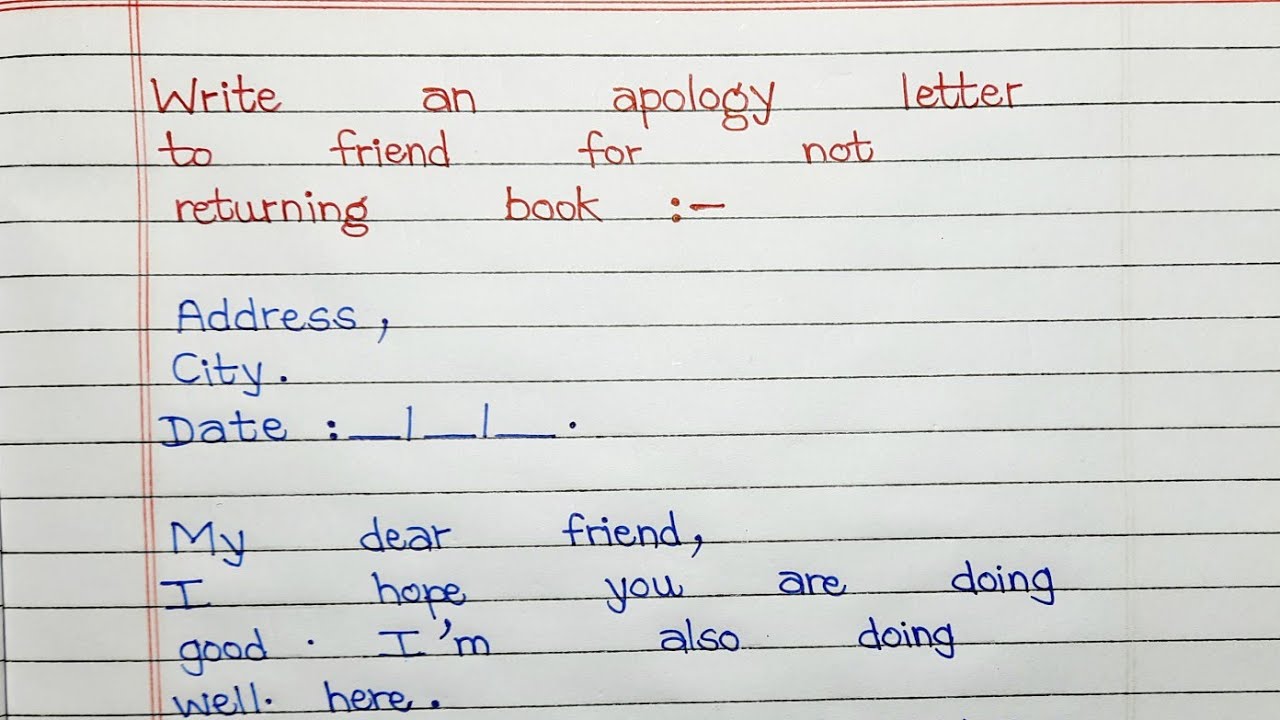 Write an apology letter
to friend for not
returning book :-
Address,
City.
Date :__/__/__.
My dear friend,
I hope you are doing
good. I'm also doing
well. here.